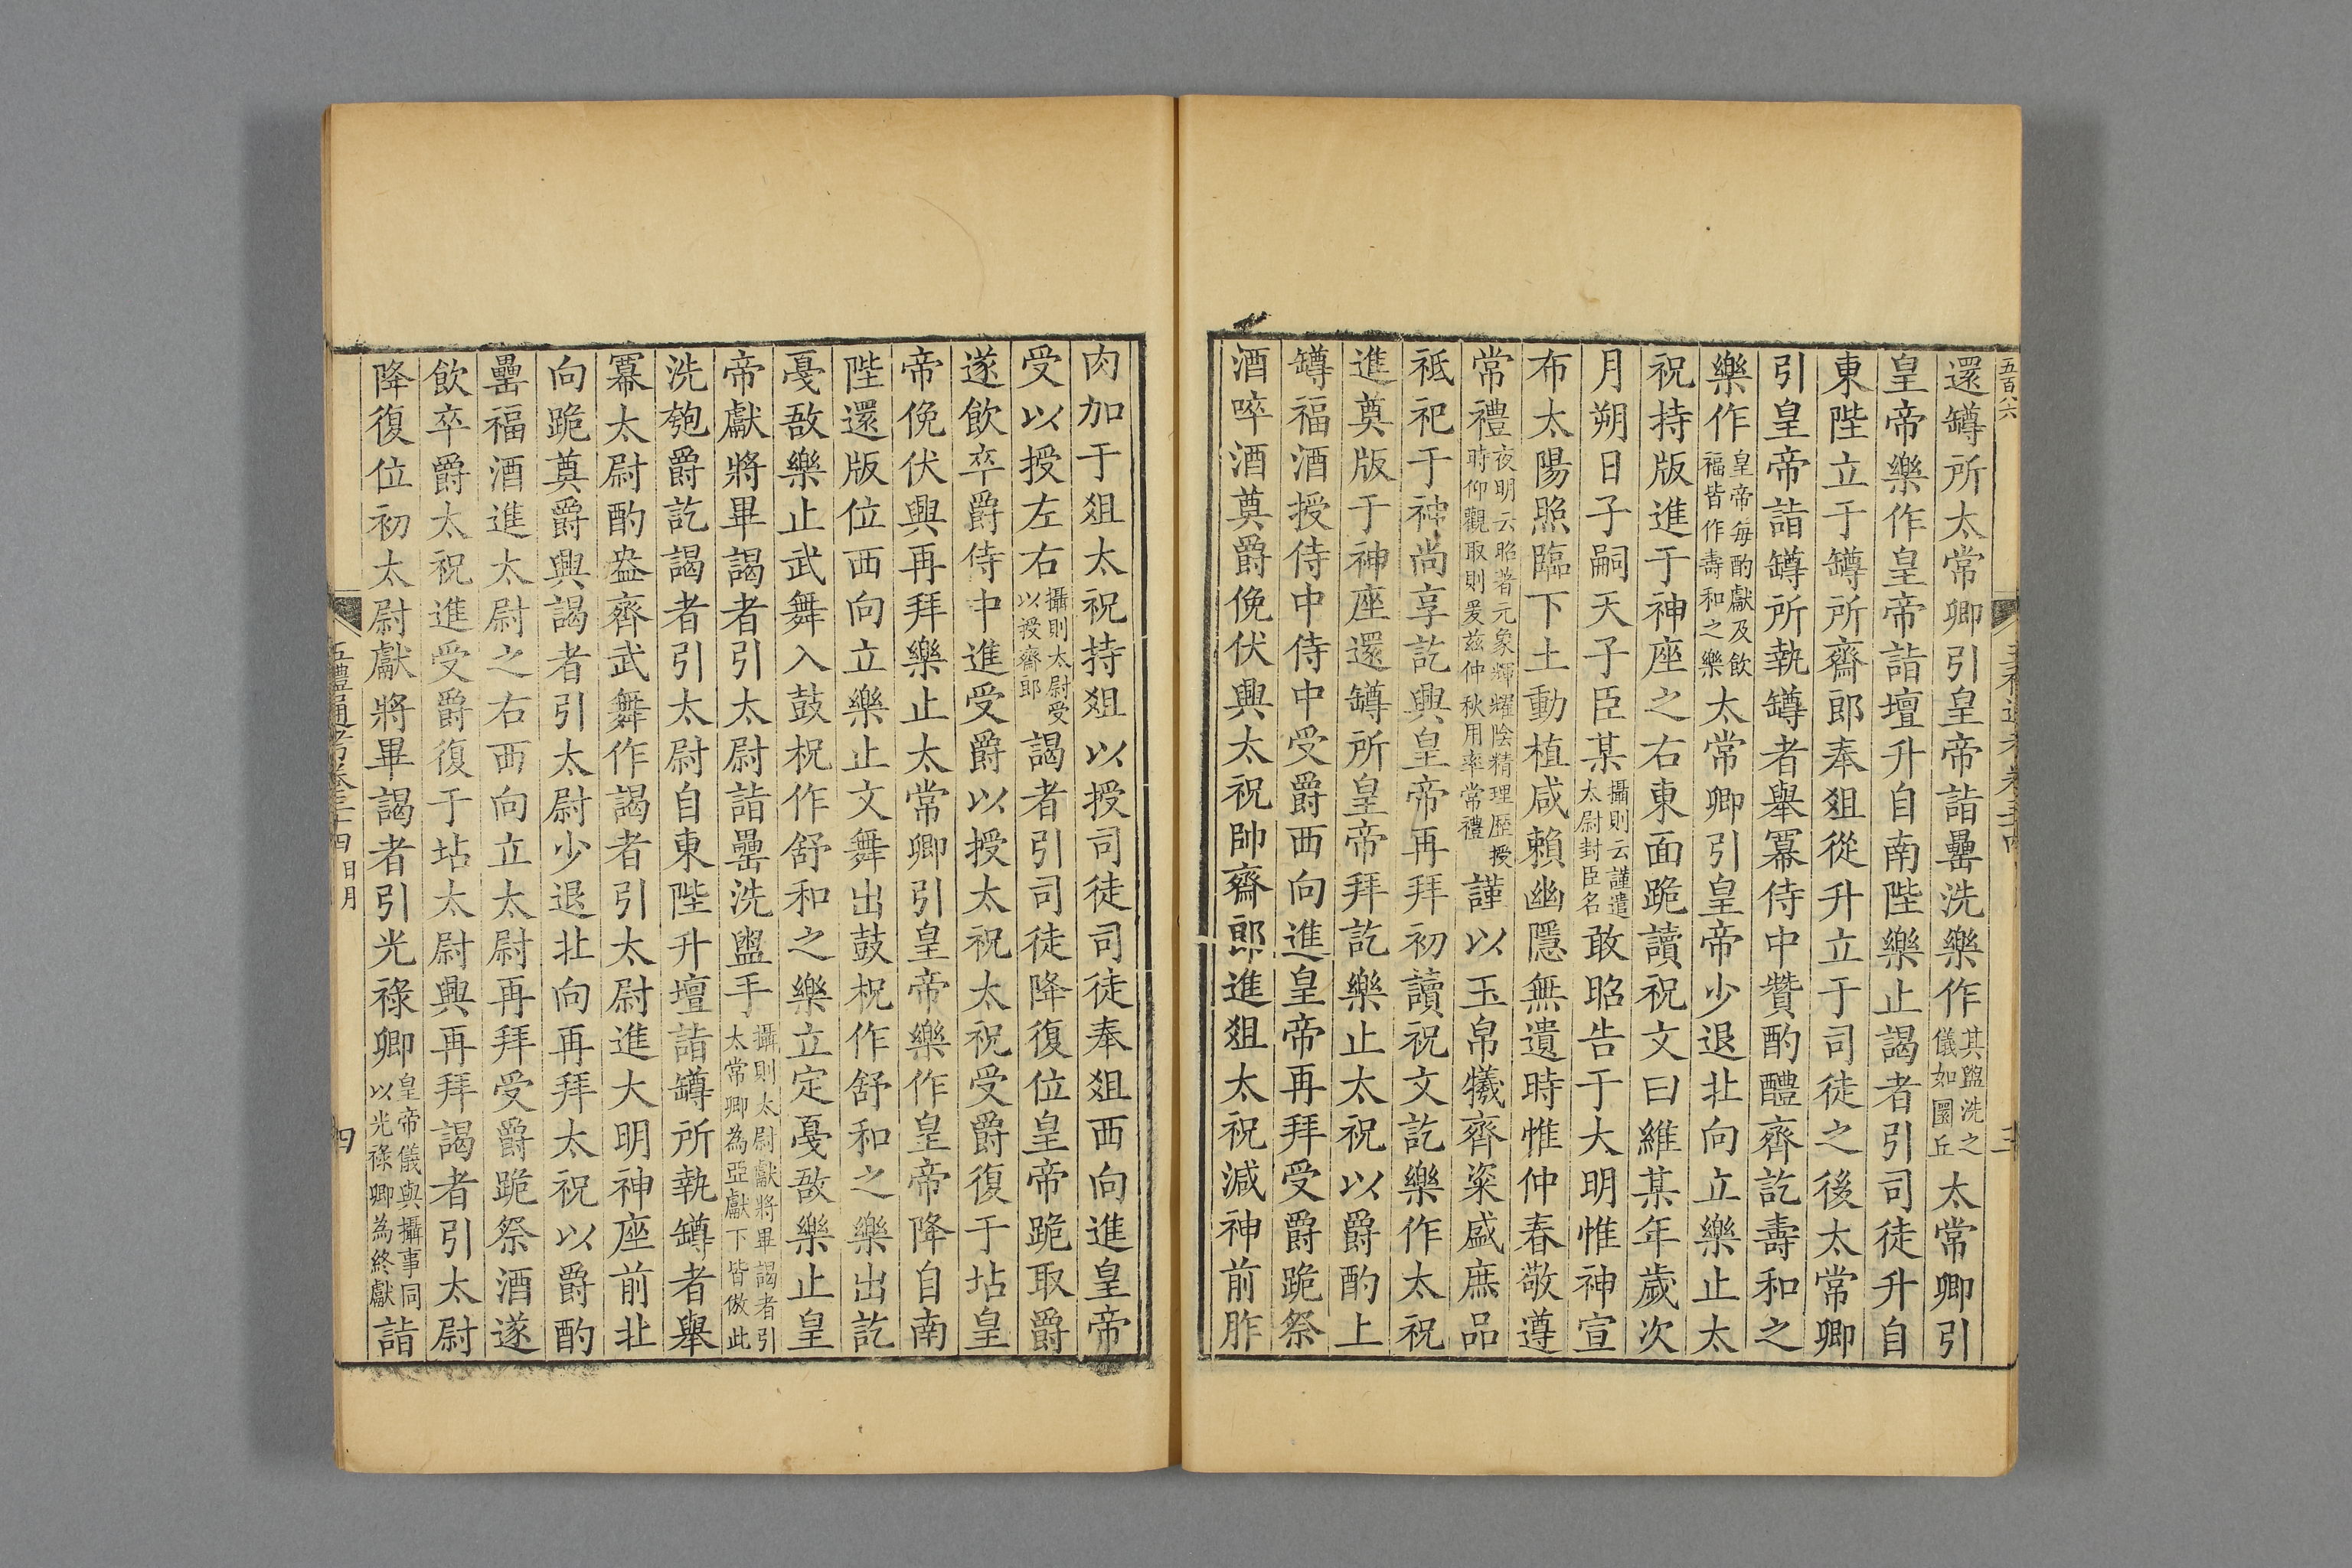 五百八六
還罇所太常卿引皇帝詣罍洗樂作其盥洗之儀如圜丘太常卿引
皇帝樂作皇帝詣壇升自南陛樂止謁者引司徒升自
東陛立于罇所齋郎奉俎從升立于司徒之後太常卿
引皇帝詣罇所執罇者舉冪侍中贊酌醴齊訖壽和之
樂作皇帝每酌獻及飲福皆作壽和之樂太常卿引皇帝少退北向立樂止太
祝持版進于神座之右東面跪讀祝文曰維某年歲次
月朔日子嗣天子臣某攝則云謹遣太尉封臣名敢昭告于大明惟神宣
布太陽照臨下土動植咸賴幽隱無遺時惟仲春敬遵
常禮夜明云昭著元象輝耀陰精理歷授時仰觀取則爰兹仲秋用率常禮謹以玉帛犧齊粢盛庶品
祗祀于神尚享訖興皇帝再拜初讀祝文訖樂作太祝
進奠版于神座還罇所皇帝拜訖樂止太祝以爵酌上
罇福酒授侍中侍中受爵西向進皇帝再拜受爵跪祭
酒啐酒奠爵俛伏興太祝帥齋郎進俎太祝減神前胙
肉加于俎太祝持俎以授司徒司徒奉俎西向進皇帝
受以授左右攝則太尉受以授齋郎謁者引司徒降復位皇帝跪取爵
遂飲卒爵侍中進受爵以授太祝太祝受爵復于坫皇
帝俛伏興再拜樂止太常卿引皇帝樂作皇帝降自南
陛還版位西向立樂止文舞出鼓柷作舒和之樂出訖
戞敔樂止武舞入鼓柷作舒和之樂立定戞敔樂止皇
帝獻將畢謁者引太尉詣罍洗盥手攝則太尉獻將畢謁者引太常卿為亞獻下皆倣此
洗匏爵訖謁者引太尉自東陛升壇詣罇所執罇者舉
冪太尉酌盎齊武舞作謁者引太尉進大明神座前北
向跪奠爵興謁者引太尉少退北向再拜太祝以爵酌
罍福酒進太尉之右西向立太尉再拜受爵跪祭酒遂
飲卒爵太祝進受爵復于坫太尉興再拜謁者引太尉
降復位初太尉獻將畢謁者引光祿卿皇帝儀與攝事同以光祿卿為終獻詣
五禮通考卷三十四 日月 四